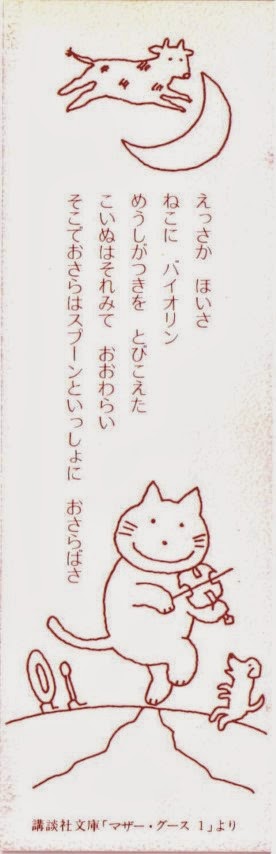 えっさか ほいさ
ねこに バイオリン
めうしがつきを とびこえた
こいぬはそれみて おおわらい
そこでおさらはスプーンといっしょに おさらばさ
講談社文庫「マザー・グース 1」より